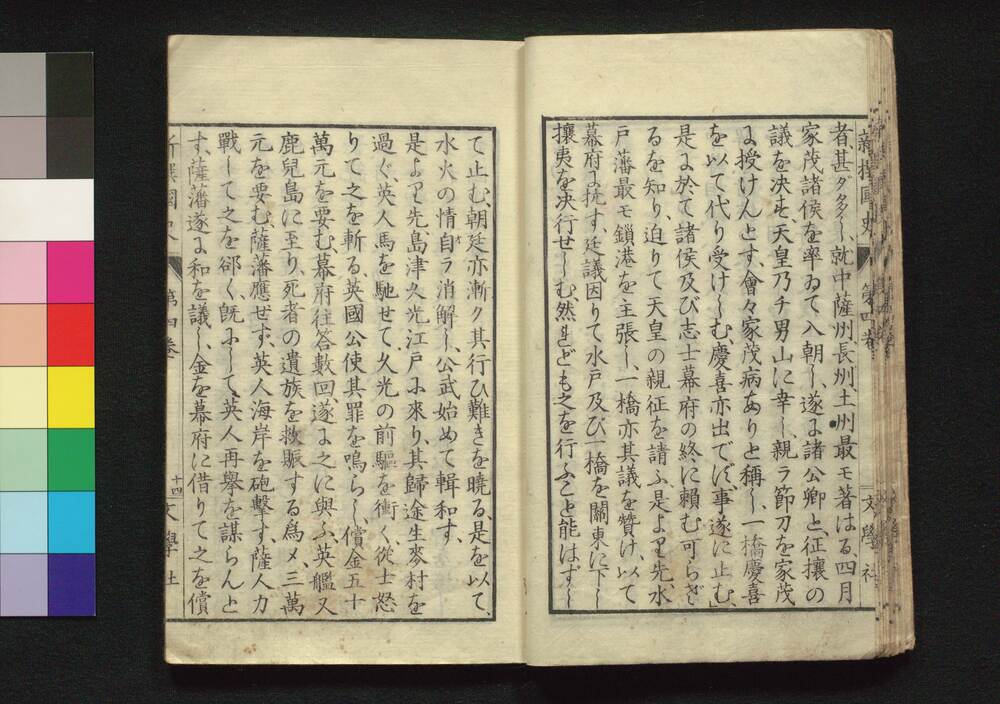 新撰國史
第四卷
文學社
者、甚ダ多し、就中薩州、長州、土州最モ著はる、四月
家茂諸侯を率ゐて入朝し、遂に諸公卿と、征攘の
議を决す、天皇乃チ男山に幸し、親ラ節刀を家茂
に授けんとす、會々家茂病ありと稱し、一橋慶喜
を以て代り受けしむ、慶喜亦出でず、事遂に止む、
是に於て諸侯及び志士幕府の終に賴む可らざ
るを知り、迫りて天皇の親征を請ふ是より先、水
戸藩最モ鎖港を主張し、一橋亦其議を贊け、以て
幕府に抗す、廷議因りて水戸及び一橋を關東に下し
攘夷を决行せしむ、然れども之を行ふこと能はずし
て止む、朝廷亦漸ク其行ひ難きを曉る、是を以て、
水火の情自ラ消解し、公武始めて輯和す、
是より先島津久光江戸に來り、其歸途生麥村を
過ぐ、英人馬を馳せて久光の前驅を衝く、從士怒
りて之を斬る、英國公使其罪を鳴らし、償金五十
萬元を要む、幕府往答數回遂に之に與ふ、英艦又
鹿兒島に至り、死者の遺族を救賑する爲メ、三萬
元を要む、薩藩應ぜず、英人海岸を砲擊す、薩人力
戰して之を郤く、旣にして、英人再擧を謀らんと
す、薩藩遂に和を議し、金を幕府に借りて之を償
新撰國史
第四卷
十四
文學社